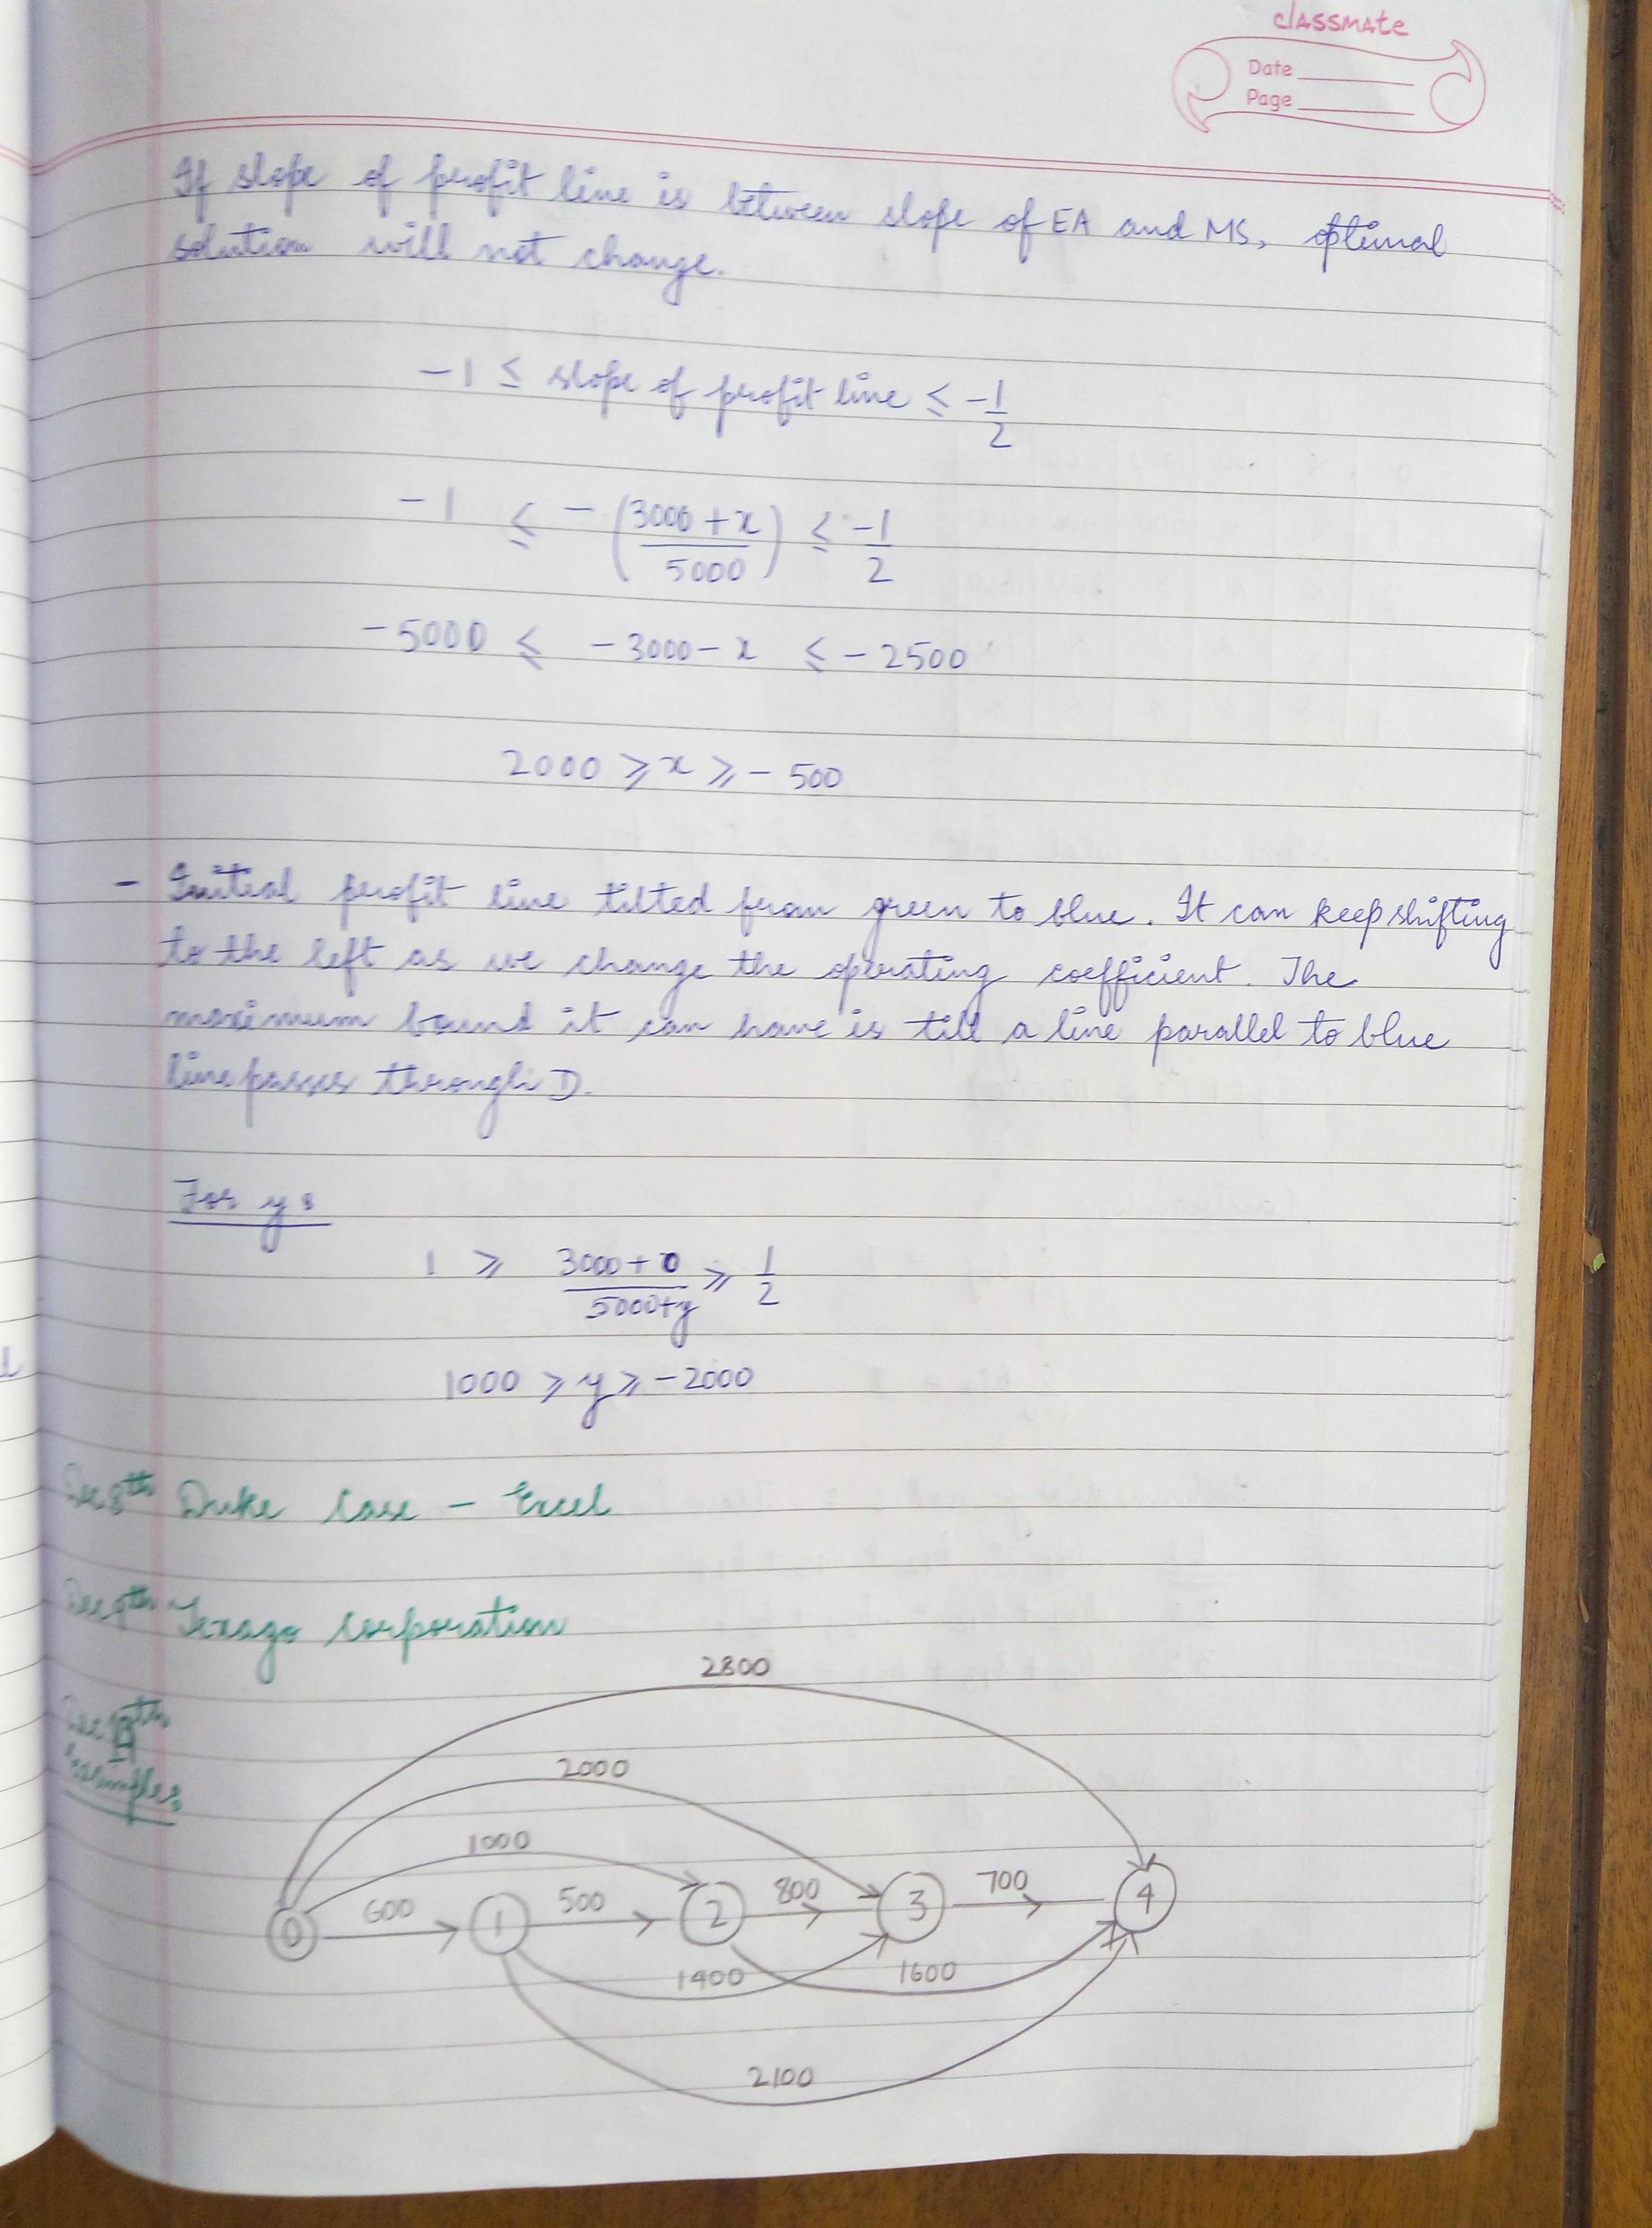 classmate
Date
Page
If slope of profit line is between slope of EA and MS, optimal
solution will not change.
-1 ≤ slope of profit line ≤ -1/2
-1 ≤ -(3000 + x / 5000) ≤ -1/2
-5000 ≤ -3000 - x ≤ -2500
2000 ≥ x ≥ -500
- Initial profit line tilted from green to blue. It can keep shifting
to the left as we change the operating coefficient. The
maximum bound it can have is till a line parallel to blue
line passes through D.
For y:
1 ≥ 3000+0 / 5000+y ≥ 1/2
1000 ≥ y ≥ -2000
Dec 8th Duke Case - Excel
Dec 9th Texago Corporation
2800
Dec
2000
Examples
1000
600 500 800 700
0 1 2 3 4
1400 1600
2100